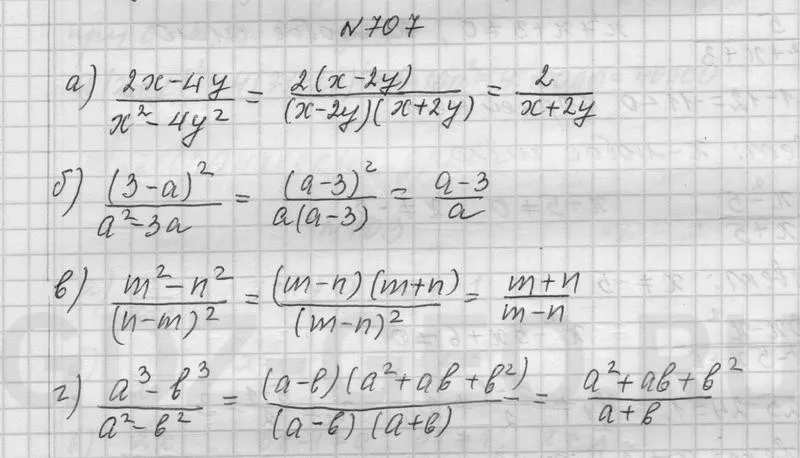 №707
а) (2x-4y)/(x²-4y²) = 2(x-2y)/((x-2y)(x+2y)) = 2/(x+2y)
б) (3-a)²/(a²-3a) = (a-3)²/(a(a-3)) = (a-3)/a
в) (m²-n²)/(n-m)² = (m-n)(m+n)/(m-n)² = (m+n)/(m-n)
г) (a³-b³)/(a²-b²) = (a-b)(a²+ab+b²)/((a-b)(a+b)) = (a²+ab+b²)/(a+b)